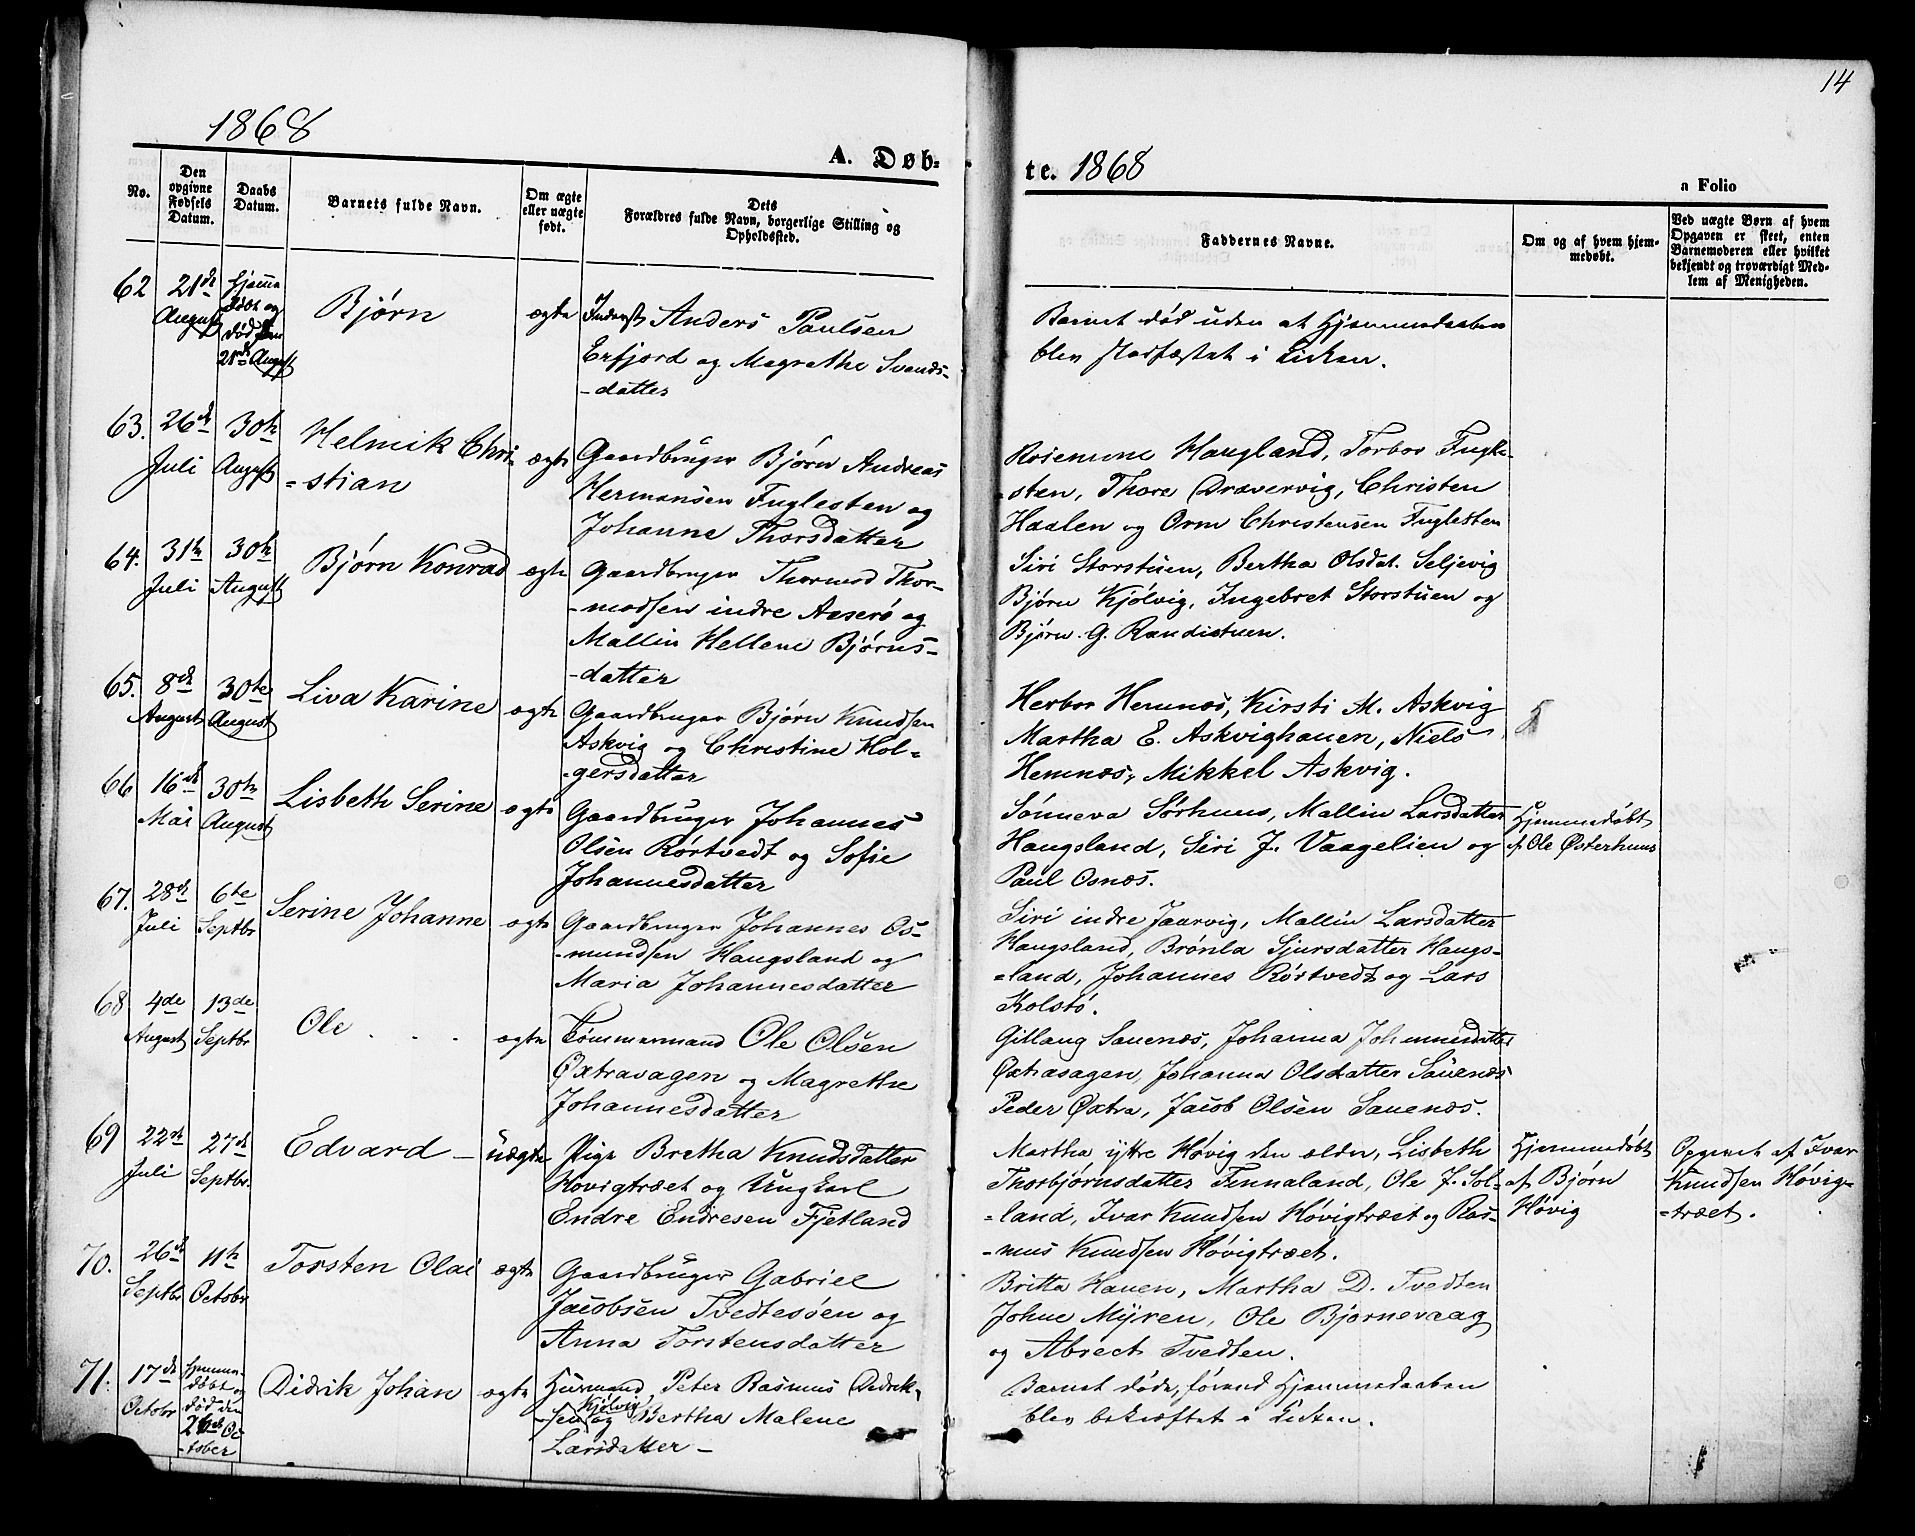 14
1868
A. Døb-
te. 1868
a Folio
No.
Den opgivne Fødsels Datum.
Daabs Datum.
Barnets fulde Navn.
Om ægte eller uægte født.
Dets Forældres fulde Navn, borgerlige Stilling og Opholdssted.
Faddernes Navne.
Om og af hvem hjemmedøbt.
Ved uægte Børn af hvem Opgaven er skeet, enten Barnemoderen eller hvilket bekjendt og troværdigt Medlem af Menigheden.
62
21de August
Hjemmedøbt og død den 21de August
Bjørn
ægte
Inderst Anders Paulsen
Erfjord og Magrethe Svends-
-datter
Barnet død uden at Hjemmedaaben
blev stadfæstet i Kirken.
63.
26de Juli
30te August
Helmik Chri-
-stian
ægte
Gaardbruger Bjørn Andreas
Hermansen Fuglesten og
Johanne Thorsdatter
Rosemine Haugland, Torbor Fugle-
-sten, Thore Drævervig, Christen
Haalen og Orm Christensen Fuglesten
64.
31te Juli
30te August
Bjørn Konrad
ægte
Gaardbruger Thormod Thor-
-modsen indre Aaserö og
Mallin Hellene Bjørns-
-datter
Siri Storstuen, Bertha Olsdat. Seljevig
Bjørn Kjölvig, Ingebret Storstuen og
Bjørn G. Randistuen.
65.
8de August
30te August
Liva Karine
ægte
Gaardbruger Bjørn Knudsen
Askvig og Christine Hol-
-gersdatter
Herbor Hemnæs, Kirsti M. Askvig
Martha E. Askvighauen, Niels
Hemnæs, Mikkel Askvig.
66
16de Mai
30te August
Lisbeth Serine
ægte
Gaardbruger Johannes
Olsen Rørtvedt og Sofie
Johannesdatter
Sönneva Sørhuus, Mallin Larsdatter
Haugsland, Siri J. Vaagelien og
Paul Osnæs.
Hjemmedøbt
af Ole Østerhuus
67.
28de Juli
6te Septbr
Serine Johanne
ægte
Gaardbruger Johannes Os-
-mundsen Haugsland og
Maria Johannesdatter
Siri indre Jaarvig, Mallin Larsdatter
Haugsland, Brönla Sjursdatter Haugs-
-land, Johannes Rørtvedt og Lars
Kolstö.
68
4de August
13de Septbr
Ole
ægte
Tømmermand Ole Olsen
Øxtravagen og Magrethe
Johannesdatter
Gitlaug Sauenæs, Johanna Johannesdatter
Øxtrasagen, Johanna Olsdatter Sauenæs
Peder Øxtra, Jacob Olsen Sauenæs.
69
22de Juli
27de Septbr.
Edvard
uægte
Pige Bretha Knudsdatter
Hovigtræet og Ungkarl
Endre Endresen Fjetland
Martha ytre Høvig den ældre, Lisbeth
Thorbjørnsdatter Finnaland, Ole J. Sol-
-land, Ivar Knudsen Høvigtræet og Ras-
-mus Knudsen Høvigtræet.
Hjemmedøbt
af Bjørn
Høvig
Opgivet af Ivar
Knudsen Høvig-
-træet.
70.
26de Septbr
11te Octobr
Torsten Olai
ægte
Gaardbruger Gabriel
Jacobsen Tvedtesøen og
Anna Torstensdatter
Britta Hauen, Martha D. Tvedten
Johne Myren, Ole Bjørnevaag
og Abrect Tvedten.
71.
17de Octobr
Hjemmedøbt og død den 26de October
Didrik Johan
ægte
Huusmand Peter Rasmus Didrik-
-sen Kjølvig og Bertha Malene
Larsdatter
Barnet døde, førend Hjemmedaaben
blev bekræftet i Kirken.